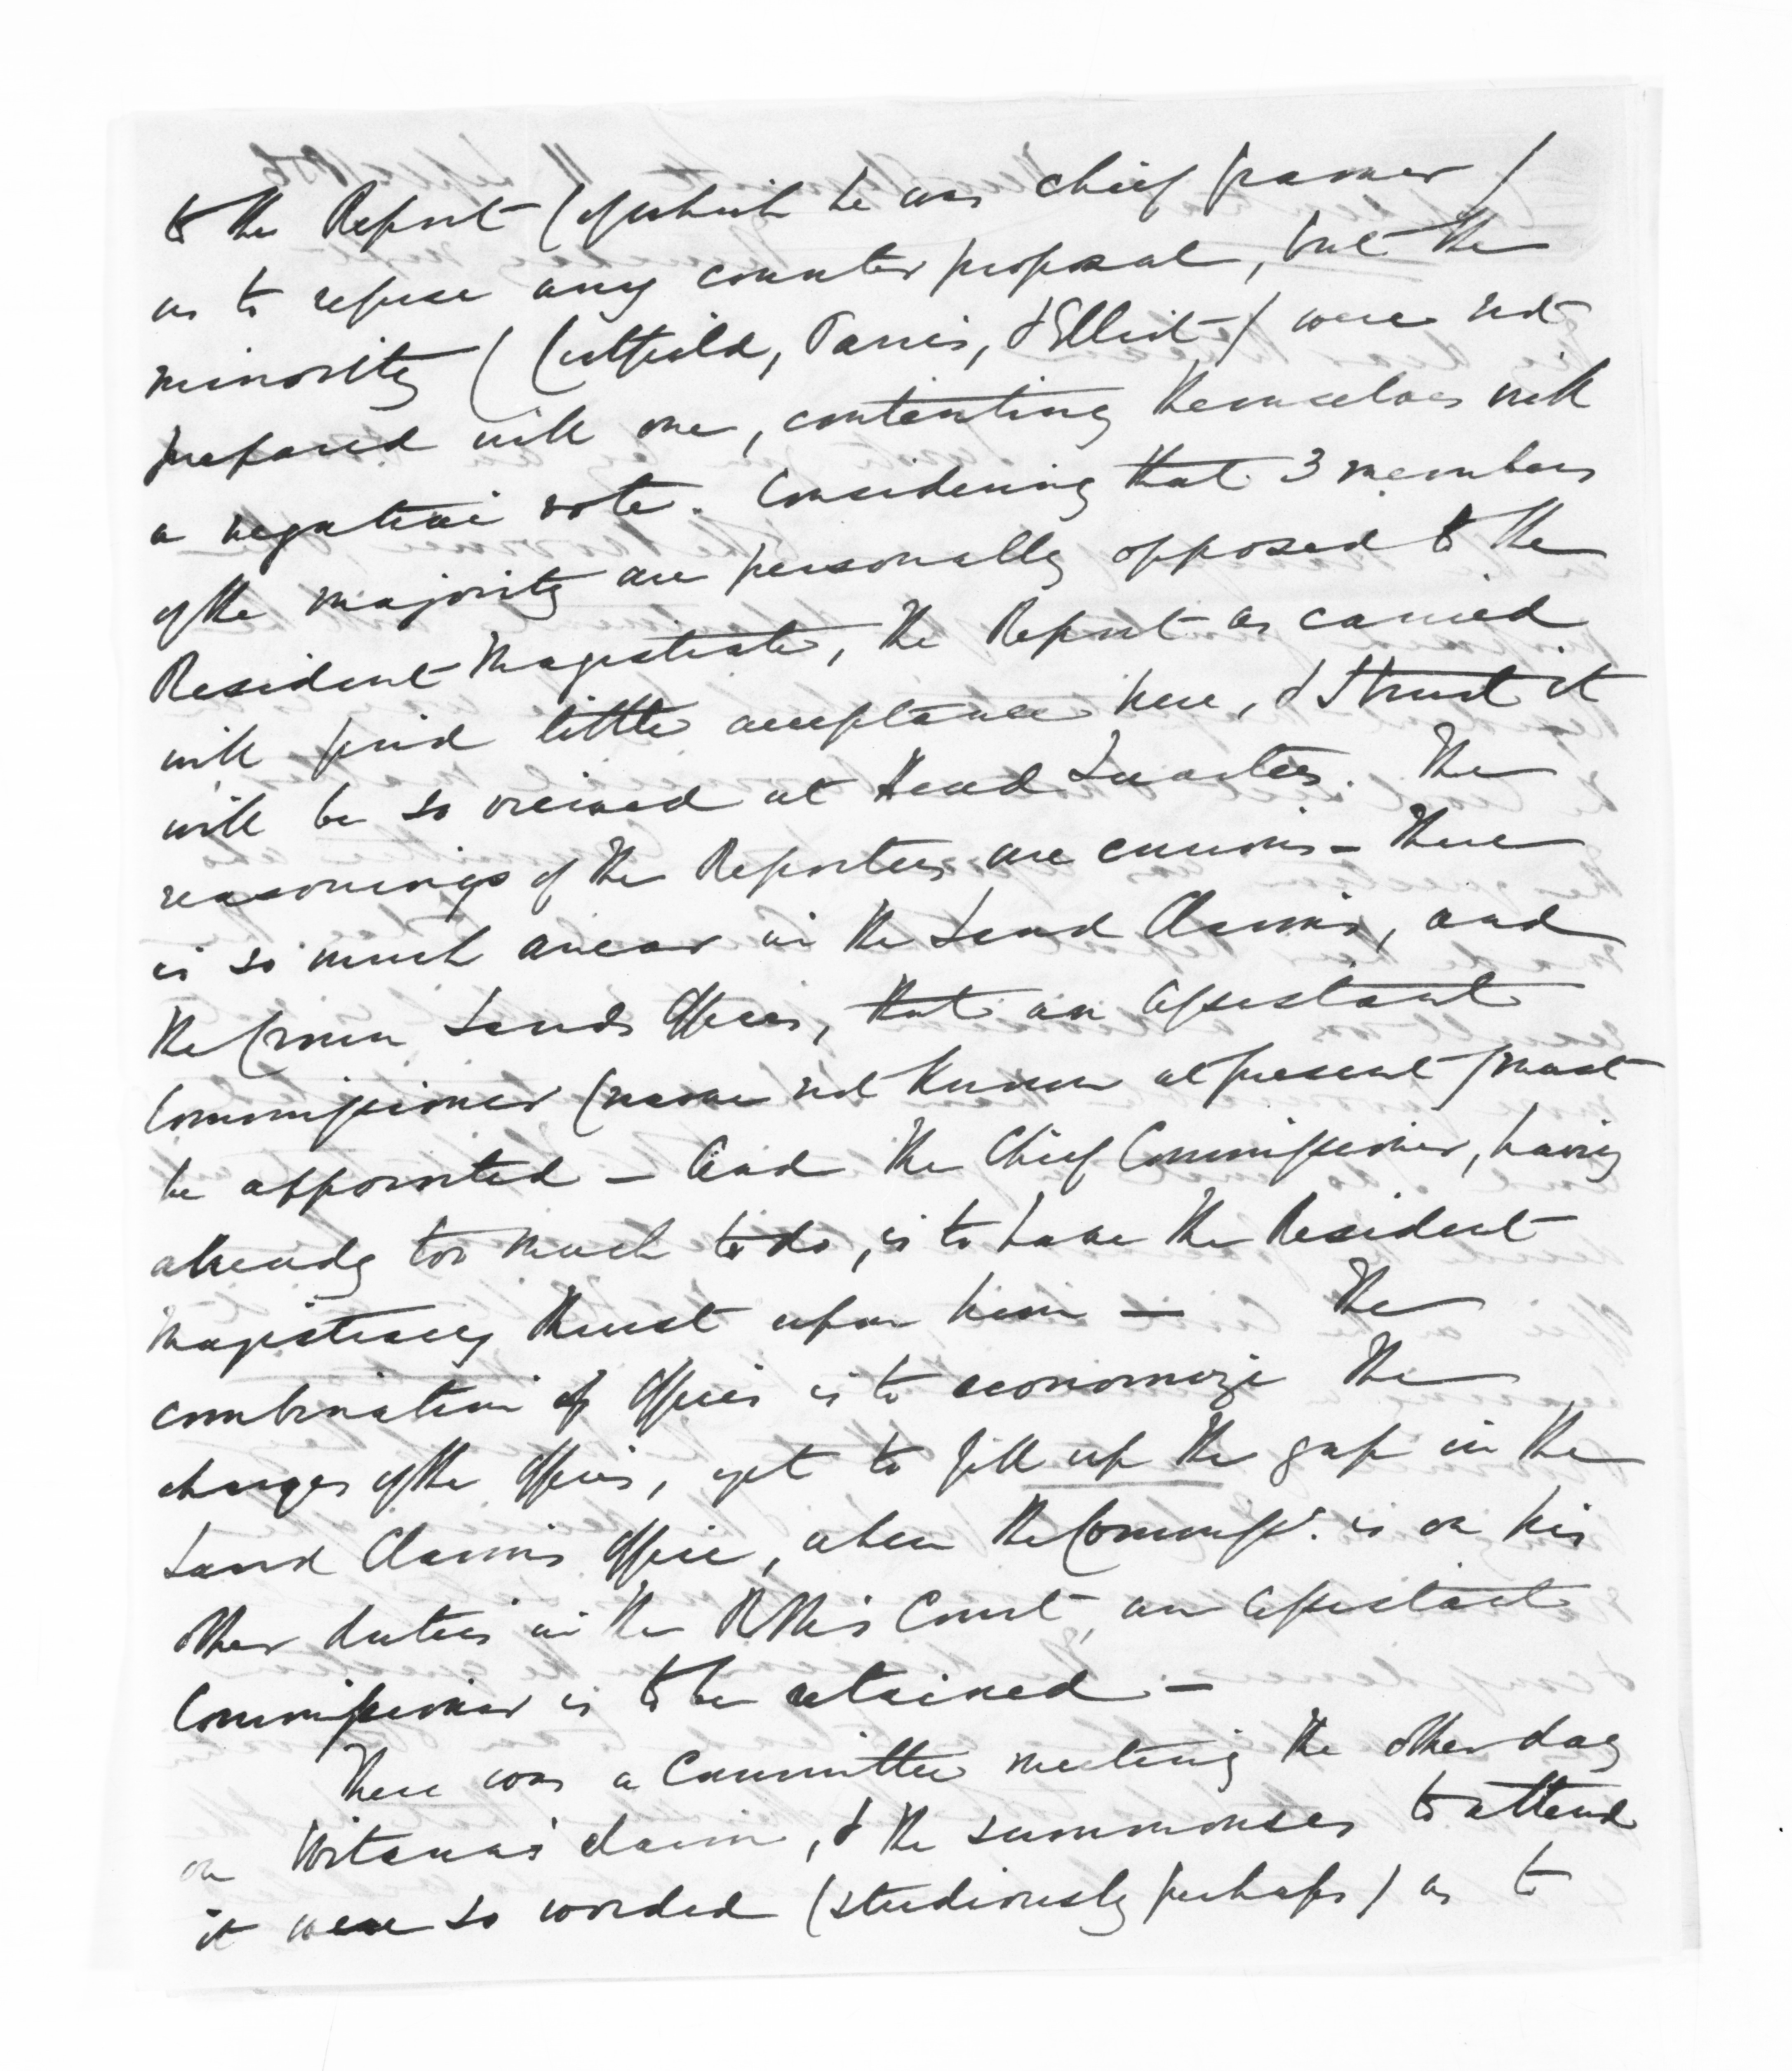 to the Report (of which he was chief framer)
as to refuse any counter proposal, but the
minority (Cutfield, Parris, & Elliot) were not
prepared with one, contenting themselves with
a negative vote. Considering that 3 members
of the majority are personally opposed to the
Resident Magistrate, the Report as carried
will find little acceptance here, & I trust it
will be so received at Head Quarters. The
reasonings of the Reporters are curious - There
is so much arrear in the Land Claims, and
the Crown Lands Offices, that an Assistant
Commissioner (name not known at present) must
be appointed - And the Chief Commissioner, having
already too much to do, is to have the Resident
Magistracy thrust upon him - The
combination of Offices is to economize the
charges of the Offices, yet to fill up the gap in the
Land Claims Office, when the Commissr. is on his
other duties in the R M's Court, an Assistant
Commissioner is to be retained -
There was a Committee meeting the other day
on Witana's claim, & the summonses to attend
it were so worded (studiously perhaps) as to